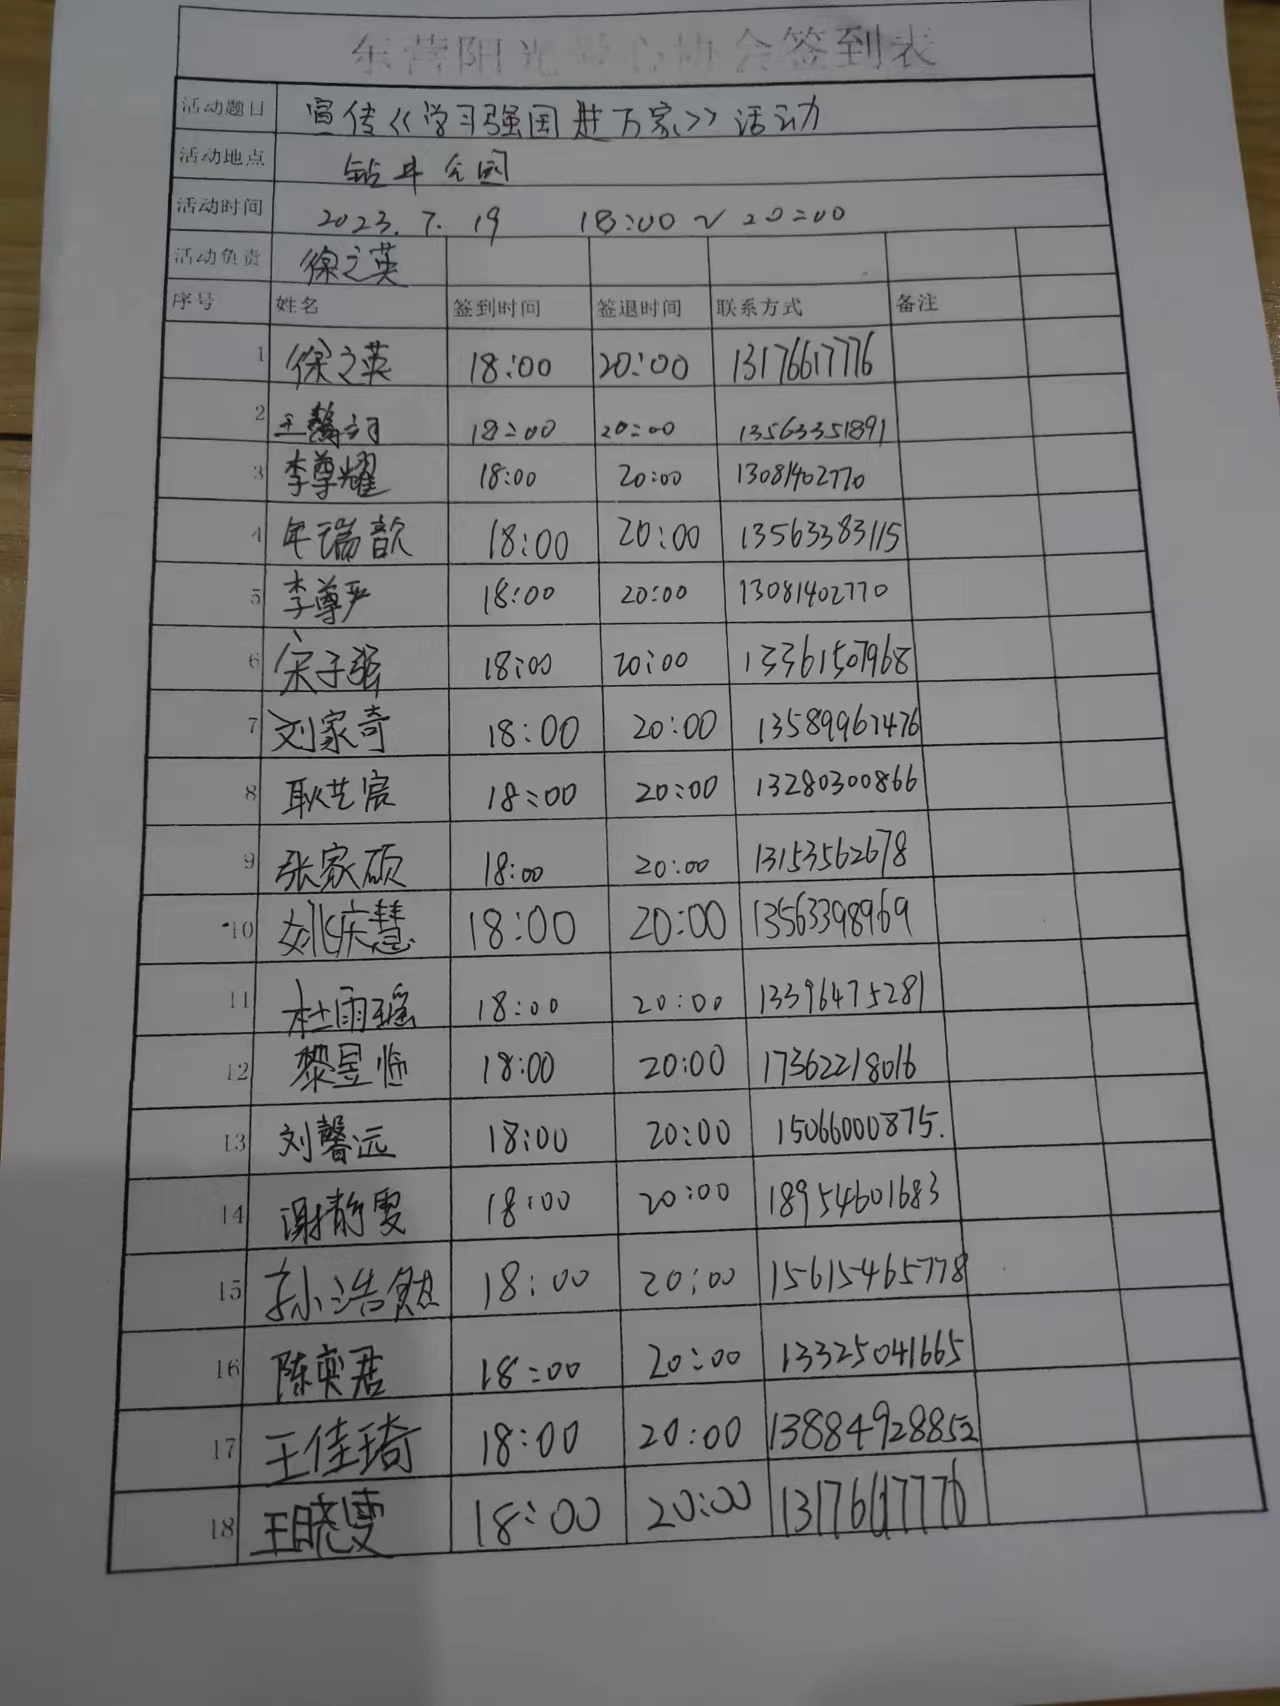 东营阳光爱心协会签到表
活动题目 宣传《学习强国进万家》活动
活动地点 钻井公园
活动时间 2023.7.19 18:00~20:00
活动负责 徐之英
序号 姓名 签到时间 签退时间 联系方式 备注
1 徐之英 18:00 20:00 13176617776
2 王馨 18:00 20:00 13563351891
3 李尊耀 18:00 20:00 13081402770
4 年瑞歆 18:00 20:00 13563383115
5 李尊严 18:00 20:00 13081402770
6 宋子强 18:00 20:00 13361507968
7 刘家奇 18:00 20:00 13589967476
8 耿艺宸 18:00 20:00 13280300866
9 张家硕 18:00 20:00 13153562678
10 姚庆慧 18:00 20:00 13563398969
11 杜雨瑶 18:00 20:00 13396475281
12 黎昱临 18:00 20:00 17362218016
13 刘馨远 18:00 20:00 15066000875.
14 谢静雯 18:00 20:00 18954601683
15 孙浩然 18:00 20:00 15615465778
16 陈奕君 18:00 20:00 13325041665
17 王佳琦 18:00 20:00 13884928852
18 王晓雯 18:00 20:00 13176617776